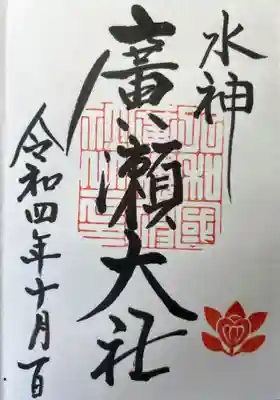 水神
廣瀬大社
令和四年十月一日